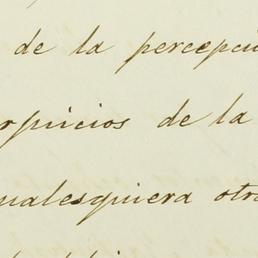 de la percepci
erpicios de la
ualesquiera otra